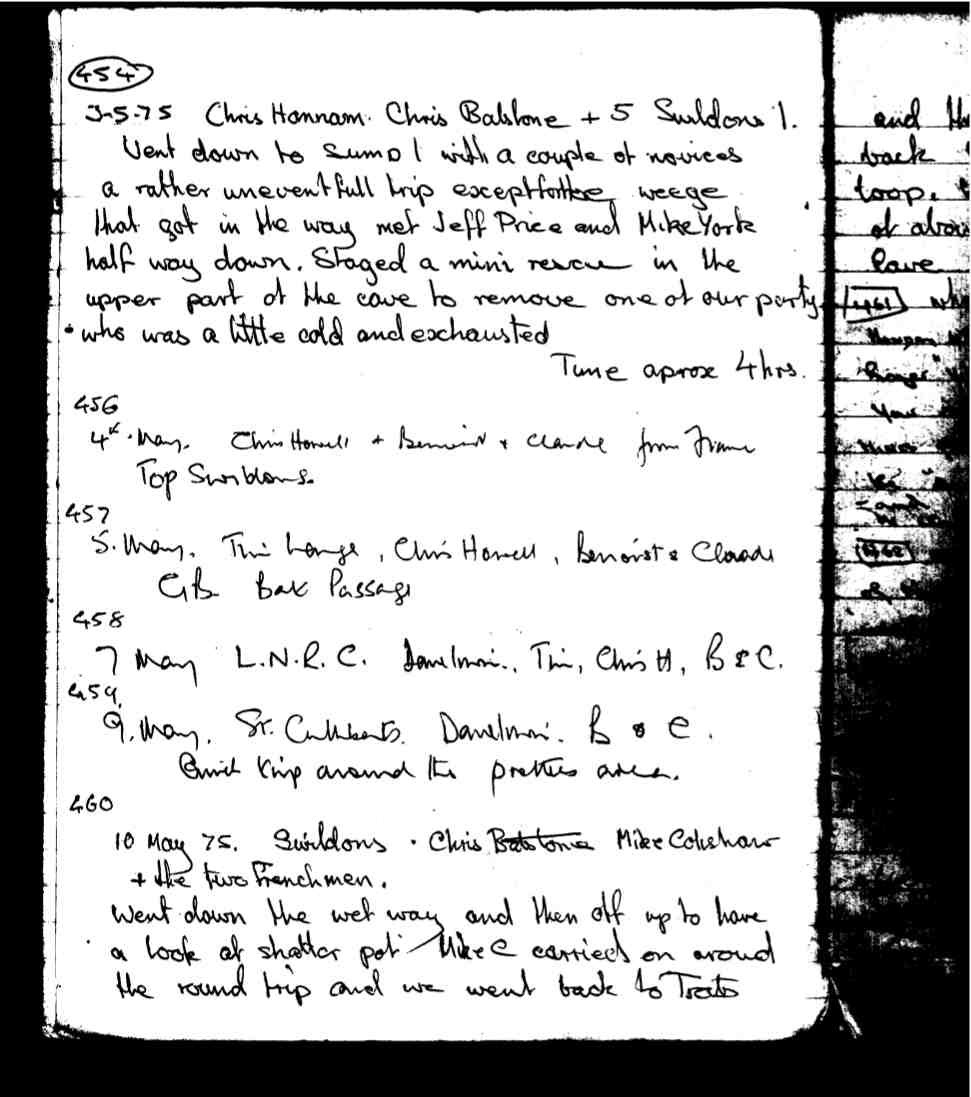 454
3-5-75 Chris Hannam. Chris Batstone + 5 Swildons 1.
Went down to Sump 1 with a couple of novices
a rather uneventfull trip except for the weege
that got in the way met Jeff Price and Mike York
half way down. Staged a mini rescue in the
upper part of the cave to remove one of our party
who was a little cold and exhausted
Time aprox 4hrs.
456
4th May. Chris Howell + & Claude from France
Top Swildons.
457
5. May. Tim Large, Chris Howell, Benoist & Claude
GB Bat Passage
458
7 May L.N.R.C. Tim, Chris H, B & C.
459.
9. May. St. Cuthberts. B & C.
Quick trip around the pretties area.
460
10 May 75. Swildons. Chris Batstone Mike Colishaw
+ the two Frenchmen.
Went down the wet way and then off up to have
a look at shatter pot Mike C carried on around
the round trip and we went back to Trats
and
back
loop.
of abov
Cave
461